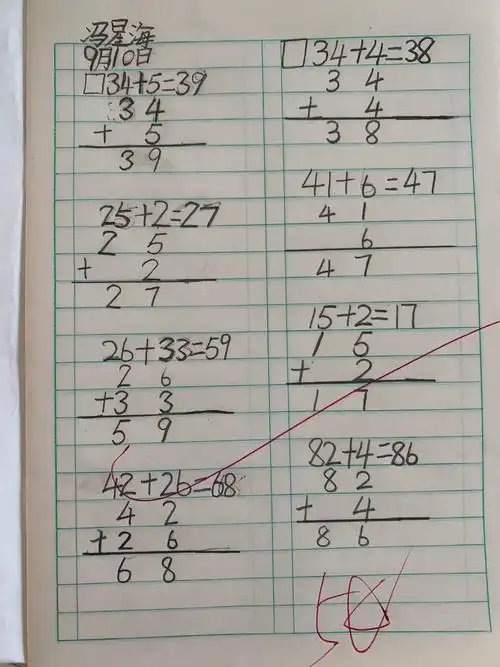 冯星海
9月10日
□34+5=39
3 4
+ 5
3 9
25+2=27
2 5
+ 2
2 7
26+33=59
2 6
+3 3
5 9
42+26=68
4 2
+2 6
6 8
□34+4=38
3 4
+ 4
3 8
41+6=47
4 1
6
4 7
15+2=17
1 5
+ 2
1 7
82+4=86
8 2
+ 4
8 6